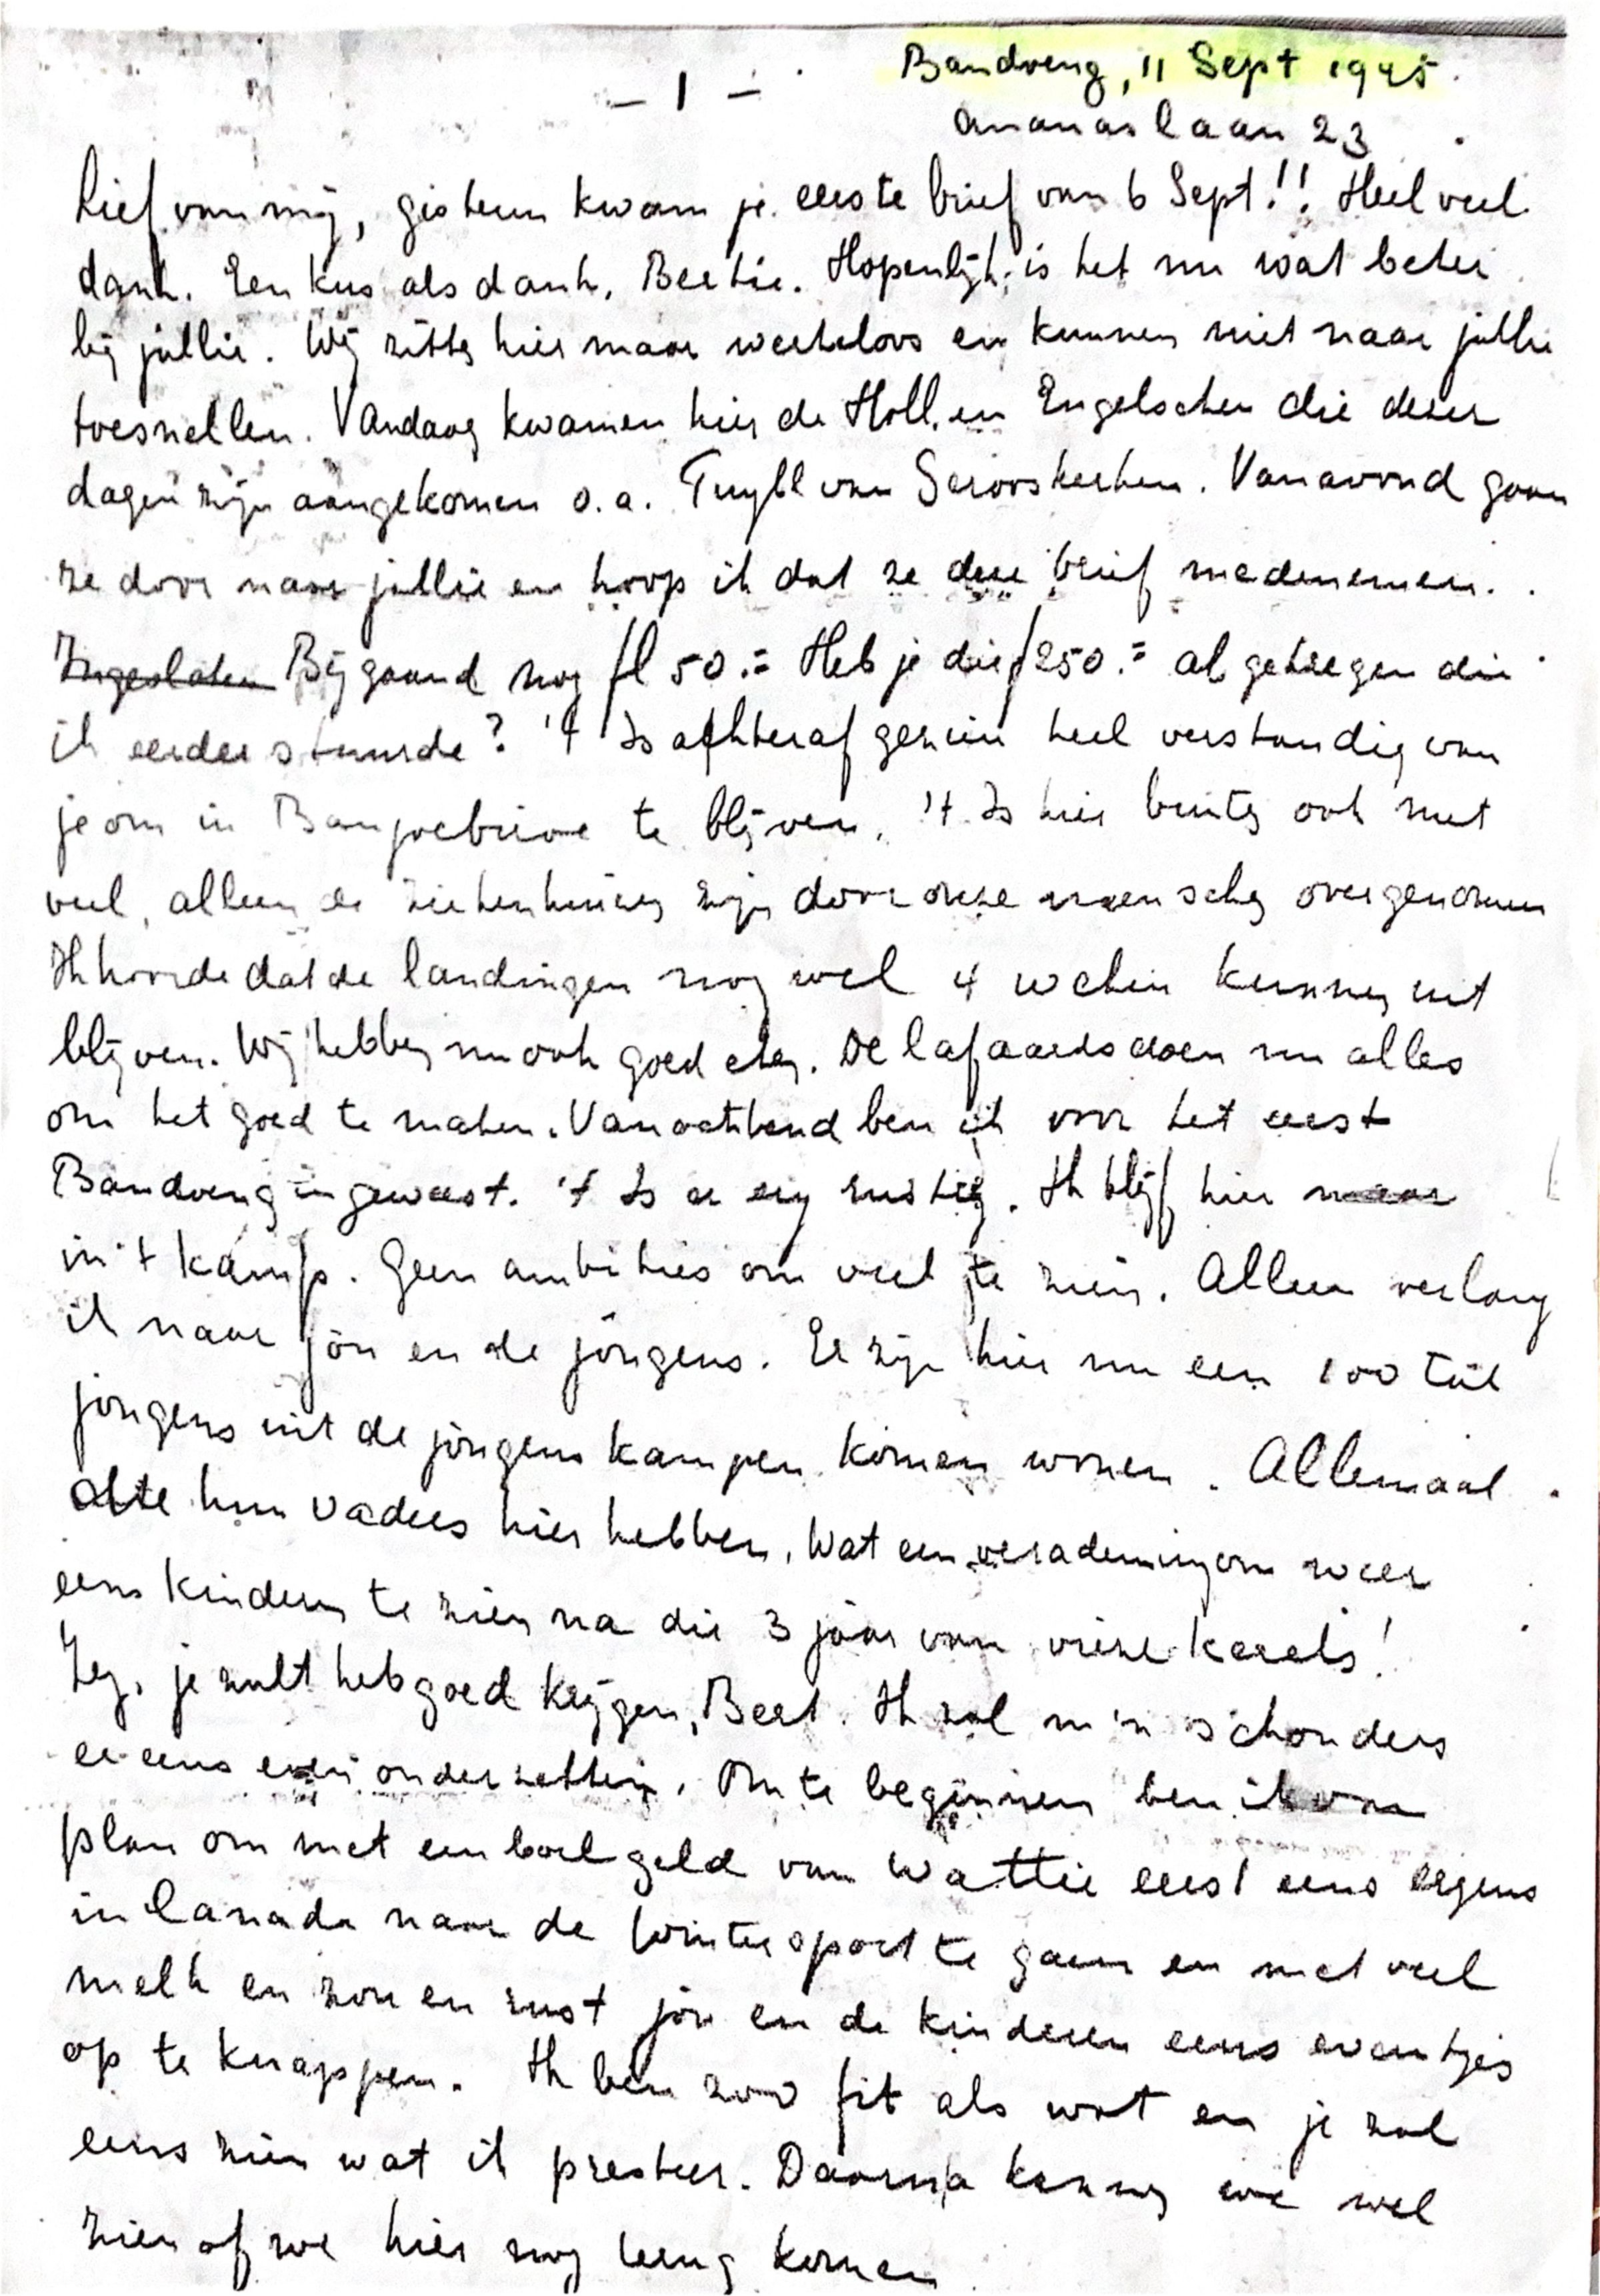 - 1 -
Bandoeng, 11 Sept 1945
Ananaslaan 23
Lief van mij, gisteren kwam je eerste brief van 6 Sept!! Heel veel
dank. Een kus als dank, Bertie. Hopenlijk is het nu wat beter
bij jullie. Wij zitten hier maar werkeloos en kunnen niet naar jullie
toesnellen. Vandaag kwamen hier de Holl. en Engelschen die dezer
dagen zijn aangekomen o.a. Tuyll van Serooskerken. Vanavond gaan
ze door naar jullie en hoop ik dat ze deze brief medenemen.
Ingesloten Bijgaand nog fl 50.= Heb je die f 250.= al gekregen die
ik eerder stuurde? 't Is achteraf gezien heel verstandig van
je om in Banjoebiroe te blijven. 't Is hier buiten ook niet
veel, alleen de ziekenhuizen zijn door onze menschen overgenomen
Ik hoorde dat de landingen nog wel 4 weken kunnen uit
blijven. Wij hebben nu ook goed eten. De lafaards doen nu alles
om het goed te maken. Vanochtend ben ik voor het eerst
Bandoeng in geweest. 't Is er erg rustig. Ik blijf hier maar
in 't kamp. Geen ambities om veel te zien. Alleen verlang
ik naar jou en de jongens. Er zijn hier nu een 100 tal
jongens uit de jongens kampen komen wonen. Allemaal
die hun vaders hier hebben. Wat een verademing om weer
eens kinderen te zien na die 3 jaar van vieze kerels!
Zeg, je zult heb goed krijgen, Bert. Ik zal m'n schouders
er eens even onder zetten. Om te beginnen ben ik van
plan om met een boel geld van Wattie eerst eens ergens
in Canada naar de Wintersport te gaan en met veel
melk en zon en rust jou en de kinderen eens eventjes
op te knappen. Ik ben zoo fit als wat en je zal
eens zien wat ik presteer. Daarna kunnen we wel
zien of we hier nog terug komen